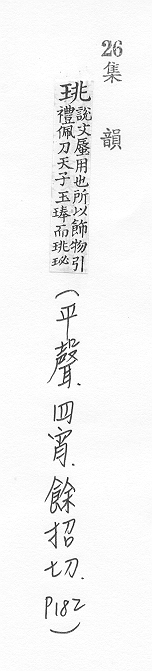 26集韻
珧說文蜃甲也所以飾物引
禮佩刀天子玉琫而珧珌
(平聲.四宵.餘招切.P182)